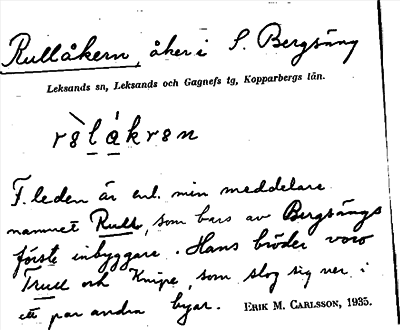 Rullåkern, åker i S. Bergsäng
Leksands sn, Leksands och Gagnefs tg, Kopparbergs län.
r8̀lákr8n
F. leden är enl. min meddelare
namnet Rull, som bars av Bergsängs
förste inbyggare. Hans bröder voro
Trull och Knipe, som slog sig ner i
ett par andra byar. ERIK M. CARLSSON, 1935.